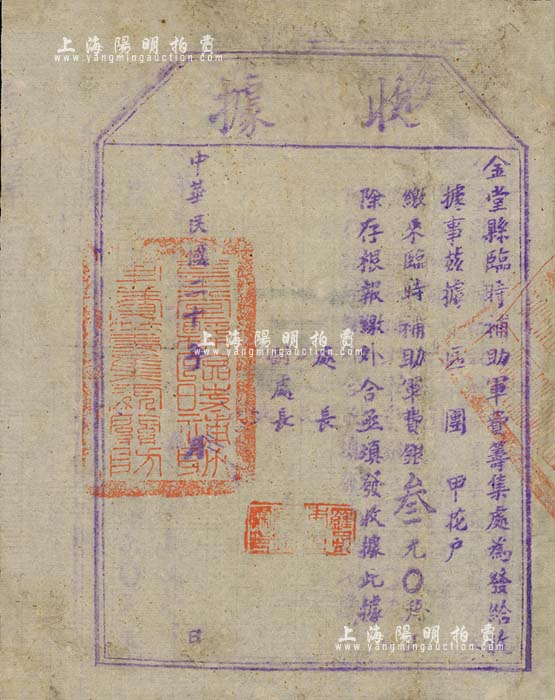 上海陽明拍賣
www.yangmingauction.com
收據
金堂縣臨時補助軍費籌集處為發給收
據事茲據　區　團　甲花戶
繳來臨時補助軍費銀叁元〇
除存根報繳外合亟填發收據此據
處長
副處長
中華民國二十　年　月　日
上海陽明拍賣
www.yangmingauction.com
上海陽明拍賣
www.yangmingauction.com